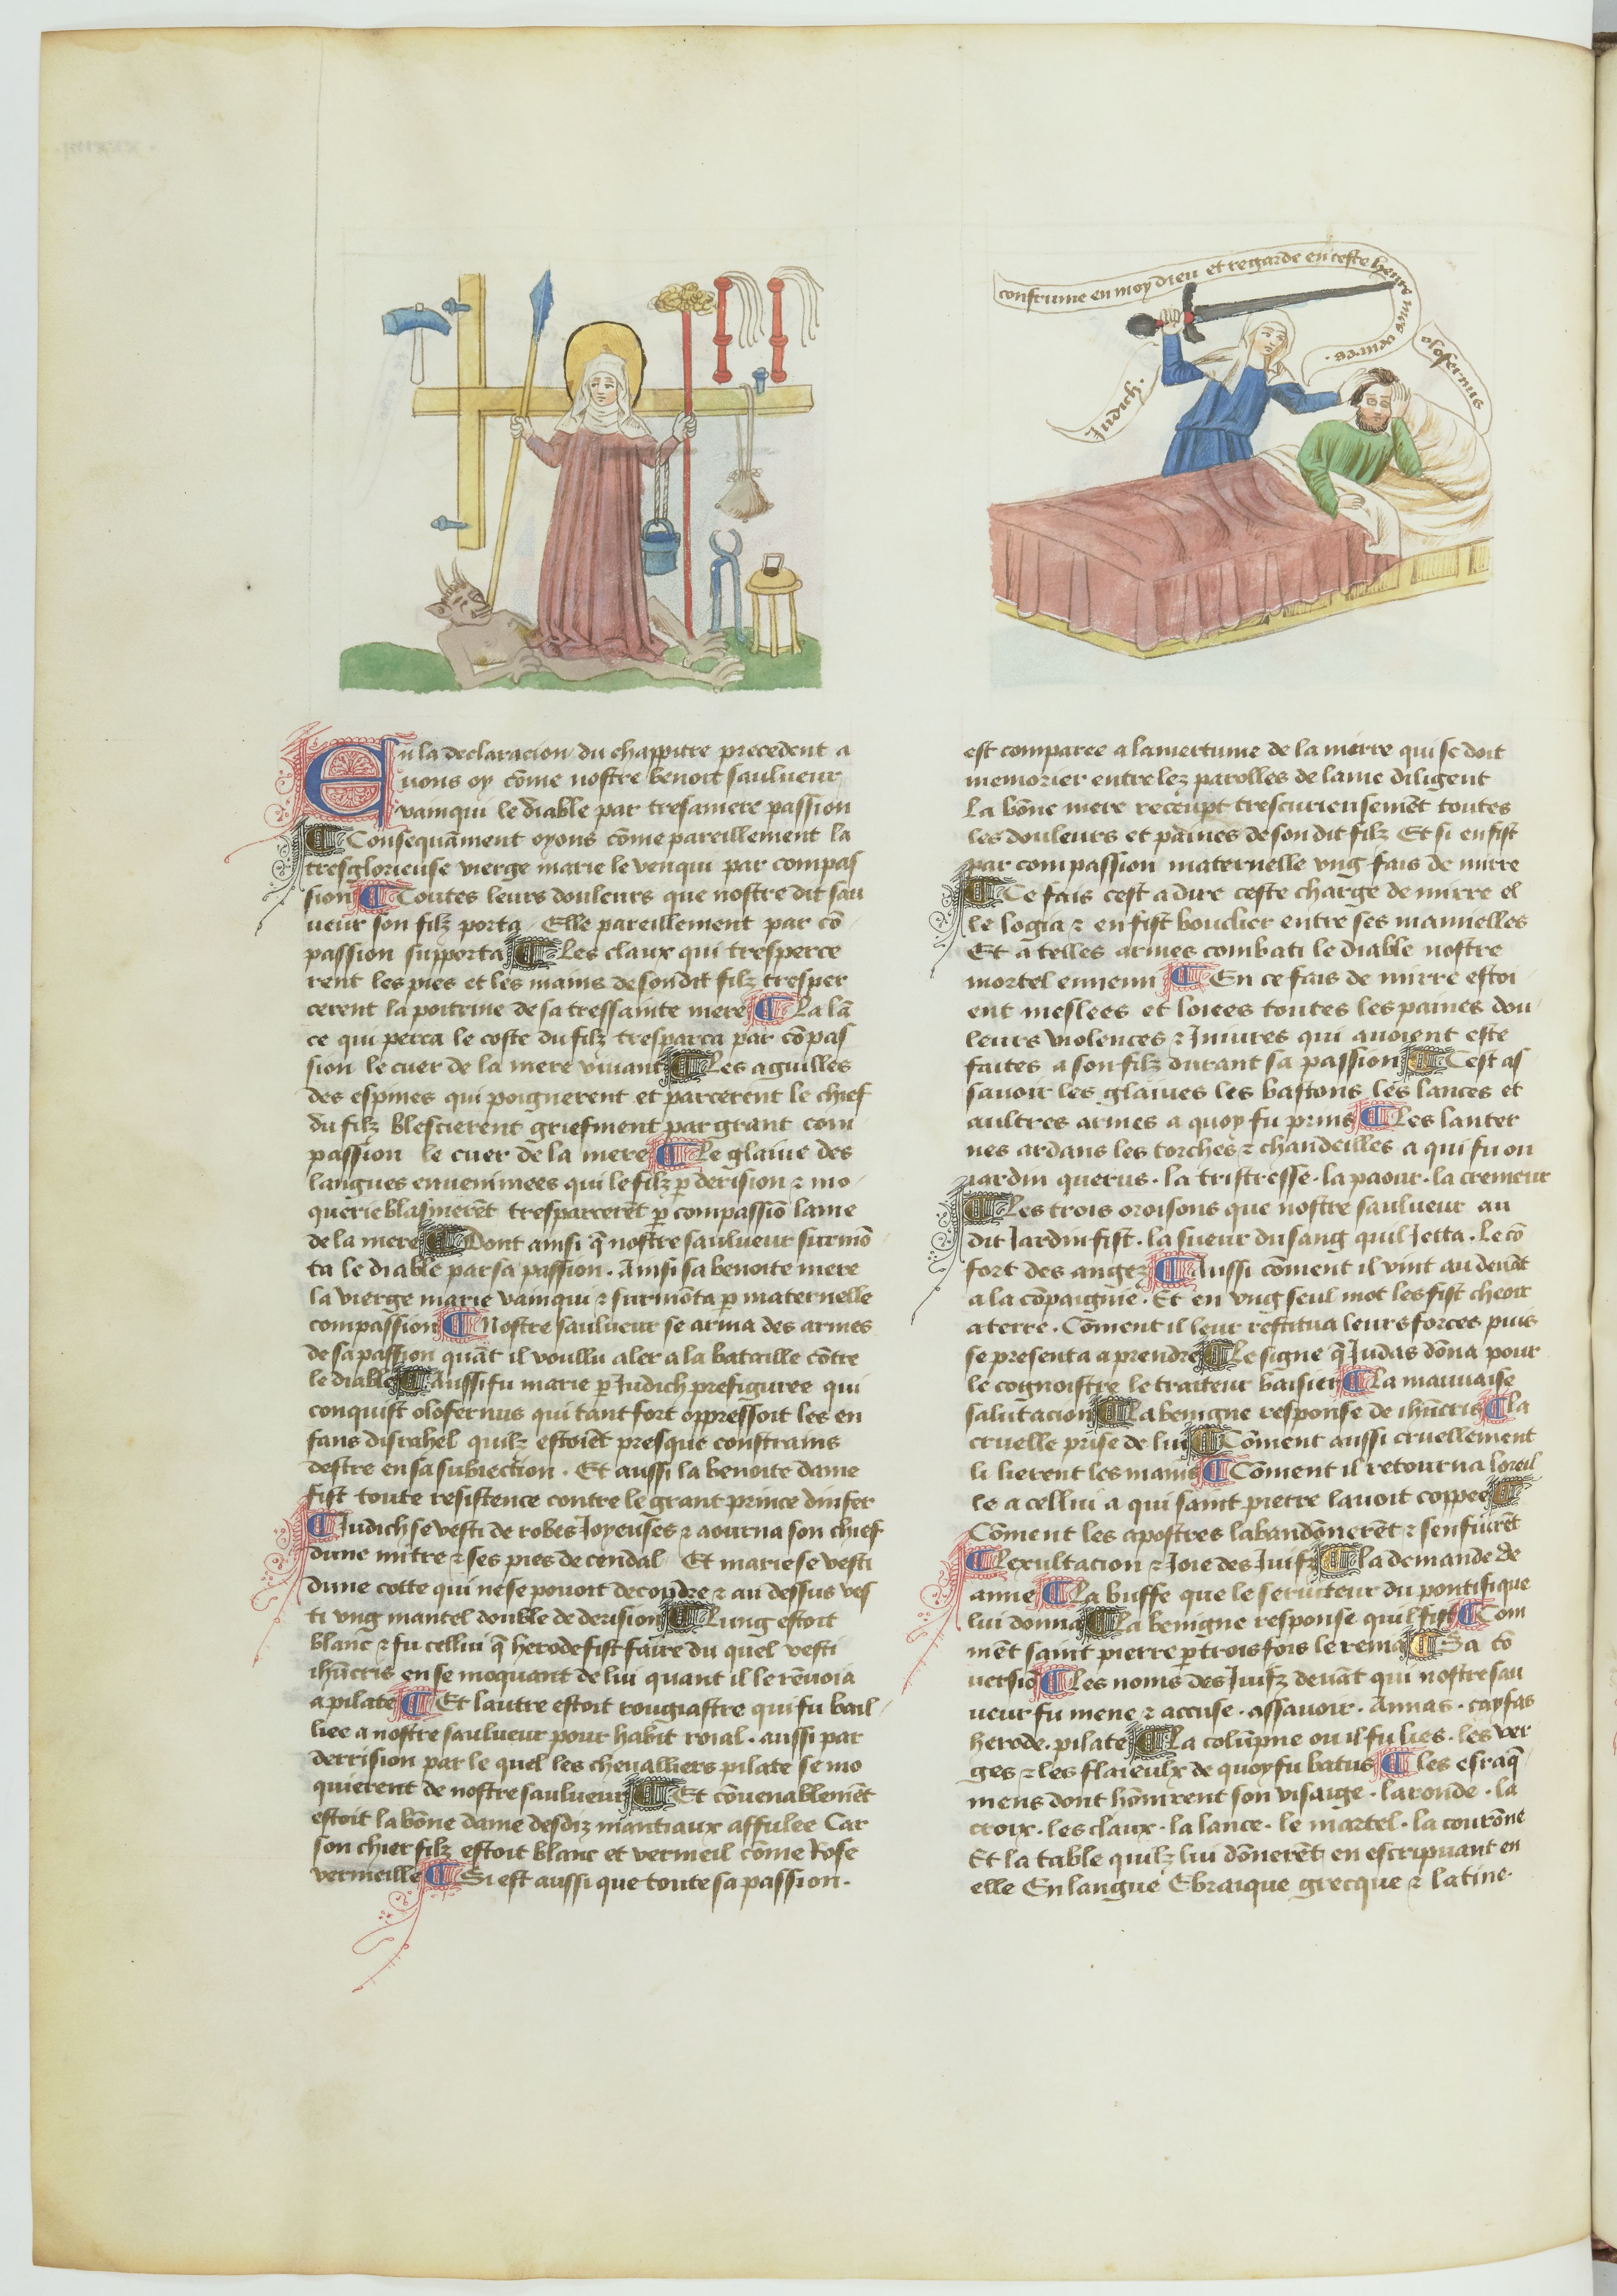 confirme en moy dieu et regarde en ceste heure mes oeuvres.
Judich.
olofernus
En la declaracion du chappitre precedent a
uons oy cõme nostre benoit saulueur
vainqui le diable par tresamere passion
Consequãment oyons cõme pareillement la
tresglorieuse vierge marie le venqui par compas
sion Toutes leurs douleurs que nostre dit sau
ueur son filz porta. Elle pareillement par cõ
passion supporta Les claux qui tresperce
rent les pies et les mains de son dit filz tresper
cerent la poitrine de sa tressainte mere La lã
ce qui perca le coste du filz tresparca par cõpas
sion le cuer de la mere viuant Les aguilles
des espines qui poignerent et parcerent le chief
du filz blescierent griefment par grant com
passion le cuer de la mere Le glaiue des
langues enuenimees qui le filz ꝑ derision ⁊ mo
querie blasmerẽt tresparcerẽt ꝑ compassiõ lame
de la mere Dont ainsi q̃ nostre saulueur surmõ
ta le diable par sa passion. Ainsi sa benoite mere
la vierge marie vainqui ⁊ surmõta ꝑ maternelle
compassion Nostre saulueur se arma des armes
de sa passion quãt il voullu aler a la bataille cõtre
le diable Aussi fu marie ꝑ Judich prefiguree qui
conquist olofernus qui tant fort oppressoit les en
fans disrahel quilz estoiẽt presque constrains
destre en sa subiection. Et aussi la benoite dame
fist toute resistence contre le grant prince dinfer
Judich se vesti de robes Joyeuses ⁊ aourna son chief
dune mitre ⁊ ses pies de cendal Et marie se vesti
dune cotte qui ne se pouoit decopdre ⁊ au dessus ves
ti vng mantel double de derision Lung estoit
blanc ⁊ fu cellui q̃ herode fist faire du quel vesti
ihũcris en se moquant de lui quant il le rẽuoia
a pilate Et lautre estoit rougiastre qui fu bail
liee a nostre saulueur pour habit roial. aussi par
derrision par le quel les cheualliers pilate se mo
quierent de nostre saulueur Et cõuenablemẽt
estoit la bõne dame desdiz mantiaux affulee Car
son chier filz estoit blanc et vermeil cõme Rose
vermeille Si est aussi que toute sa passion.
est comparee a lamertume de la mirre qui se doit
memorier entre lez parolles de lame diligent
La bõne mere receupt trescurieusemẽt toutes
les douleurs et paines de son dit filz Et si en fist
par compassion maternelle vng fais de mirre
Ce fais cest a dire ceste charge de mirre el
le logia ⁊ en fist bouclier entre ses mamelles
Et a telles armes combati le diable nostre
mortel ennemi En ce fais de mirre estoi
ent meslees et loiees toutes les paines dou
leurs violences ⁊ Iniures qui auoient este
faites a son filz durant sa passion Cest as
sauoir les glaiues les bastons les lances et
aultres armes a quoy fu prins Les lanter
nes ardans les torches ⁊ chandeilles a qui fu ou
jardin querus. la tristresse. la paour. la cremeur
Les trois oroisons que nostre saulueur au
dit Jardin fist. la sueur du sang quil Jetta. Le cõ
fort des angez Aussi cõment il vint au deuãt
a la cõpaignie. Et en vng seul mot les fist cheoir
a terre. Cõment il leur restitua leurs forces puis
se presenta a prendre Le signe q̃ Judas dõna pour
le cognoistre le traiteur baisier La mauuaise
salutacion La benigne response de ihũcris la
cruelle prise de lui Cõment aussi cruellement
li lierent les mains Cõment il retourna loreil
le a cellui a qui saint pietre lauoit coppee
Cõment les apostres labandõnerẽt ⁊ senfuirẽt
Lexultacion ⁊ Joie des Juifz La demande de
anne La buffe que le seruiteur du pontifique
lui donna La benigne response quil fist Com
mẽt saint pierre ꝑ trois fois le renia Sa cõ
uersiõ Les noms des Juifz deuãt qui nostre sau
ueur fu mene ⁊ accuse. assauoir. Annas. cayfas
herode. pilate La colũpne ou il fu lies. les ver
ges ⁊ les flaieulx de quoy fu batus Les esraq̃
mens dont hõnirent son visaige. laronde. la
croix. les claux. la lance. le martel. la courõne
Et la table quilz lui dõnerẽt en escripuant en
elle En langue Ebraique grecque ⁊ latine.